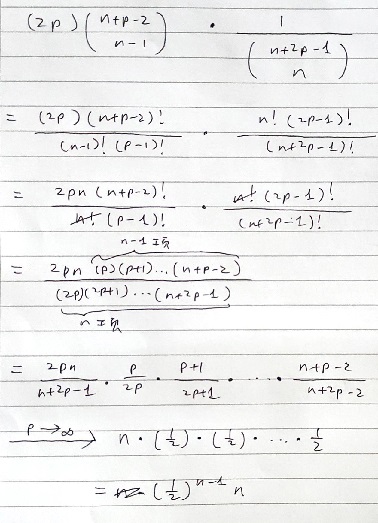 (2p) \binom{n+p-2}{n-1} \cdot \frac{1}{\binom{n+2p-1}{n}}
= \frac{(2p)(n+p-2)!}{(n-1)!(p-1)!} \cdot \frac{n!(2p-1)!}{(n+2p-1)!}
= \frac{2pn(n+p-2)!}{n!(p-1)!} \cdot \frac{n!(2p-1)!}{(n+2p-1)!}
n-1 项
= \frac{2pn(p)(p+1)...(n+p-2)}{(2p)(2p+1)...(n+2p-1)}
n 项
= \frac{2pn}{n+2p-1} \cdot \frac{p}{2p} \cdot \frac{p+1}{2p+1} \cdot ... \cdot \frac{n+p-2}{n+2p-2}
\xrightarrow{p→∞} n \cdot (\frac{1}{2}) \cdot (\frac{1}{2}) \cdot ... \cdot \frac{1}{2}
= (\frac{1}{2})^{n-1} n